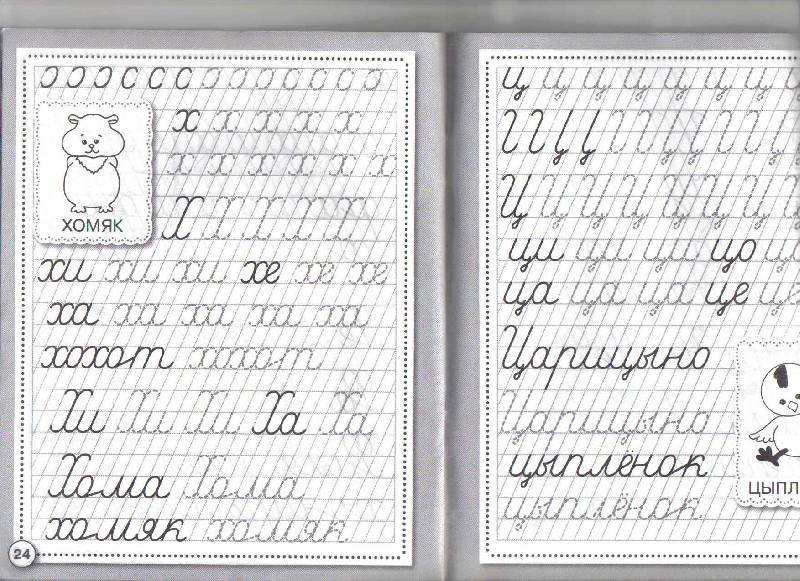 х х х х х х
х х х х х х х
ХОМЯК
Х
хи хи хи хе хе хе
ха ха ха ха ха
хохот хохот
Хи Хи Хи Ха Ха
Хома Хома
хомяк хомяк
24
ц ц ц ц ц ц ц
Ц Ц Ц Ц Ц Ц Ц
ци ци ци цо
ца ца ца це
Царицыно
Царицыно
цыплёнок
цыплёнок